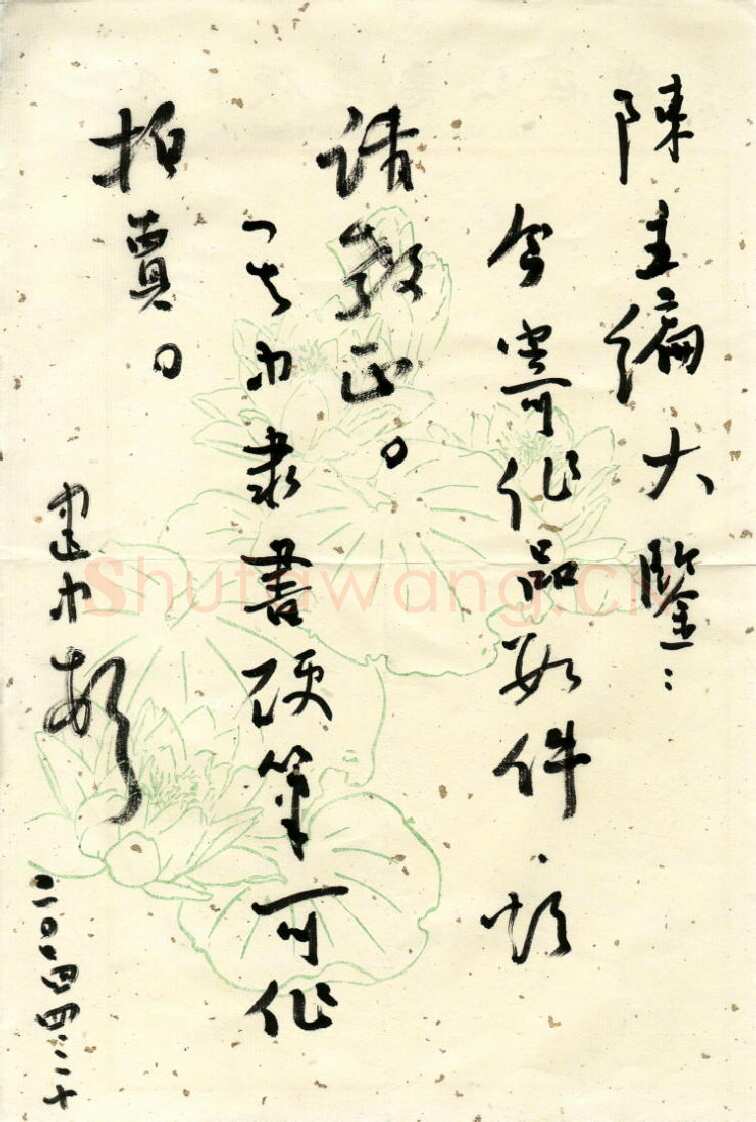 陳主编大鑒：
今寄作品数件，
请教正。
其中隶書硬笔可作
拍賣。
建中
二〇〇四.四.二十
Shufawang.cn